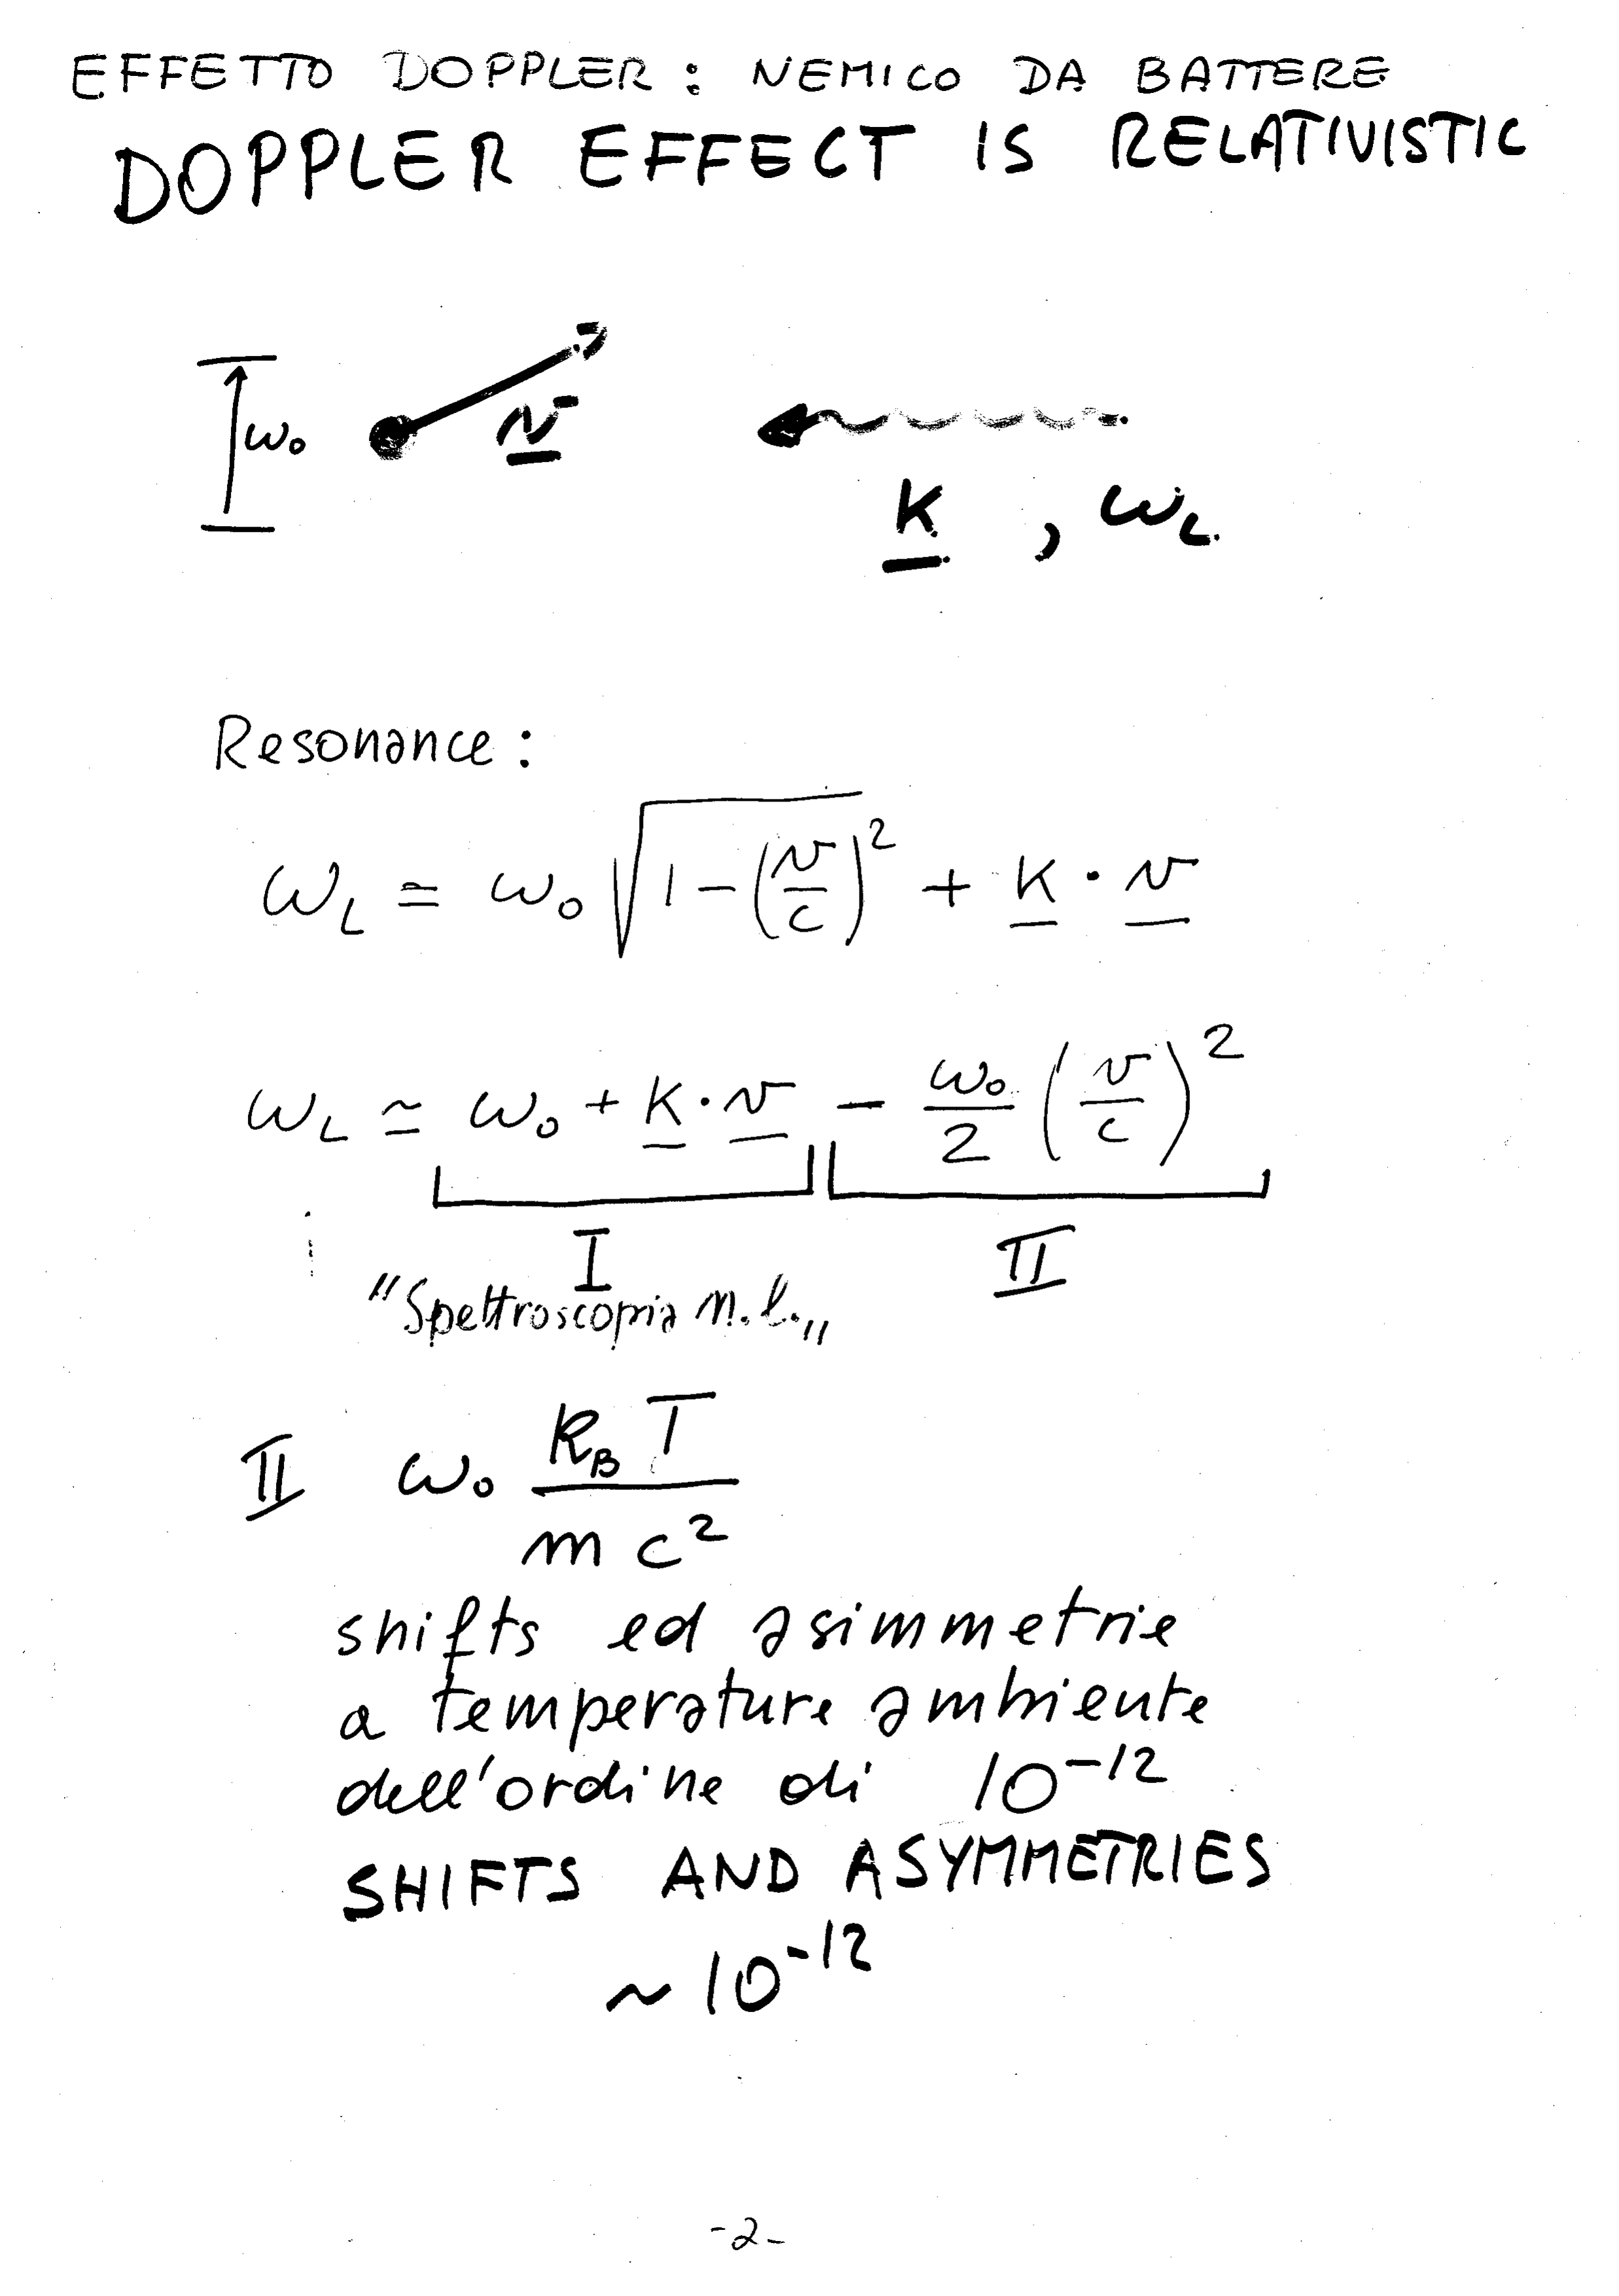 EFFETTO DOPPLER : NEMICO DA BATTERE
DOPPLER EFFECT IS RELATIVISTIC
ω₀ v
k , ω_L
Resonance :
ω_L = ω₀ √(1 − (v/c)²) + k · v
ω_L ≃ ω₀ + k · v − ω₀/2 (v/c)²
I II
"Spettroscopia n.l.„
II ω₀ k_B T / m c²
shifts ed asimmetrie
a temperature ambiente
dell'ordine di 10⁻¹²
SHIFTS AND ASYMMETRIES
~ 10⁻¹²
-2-